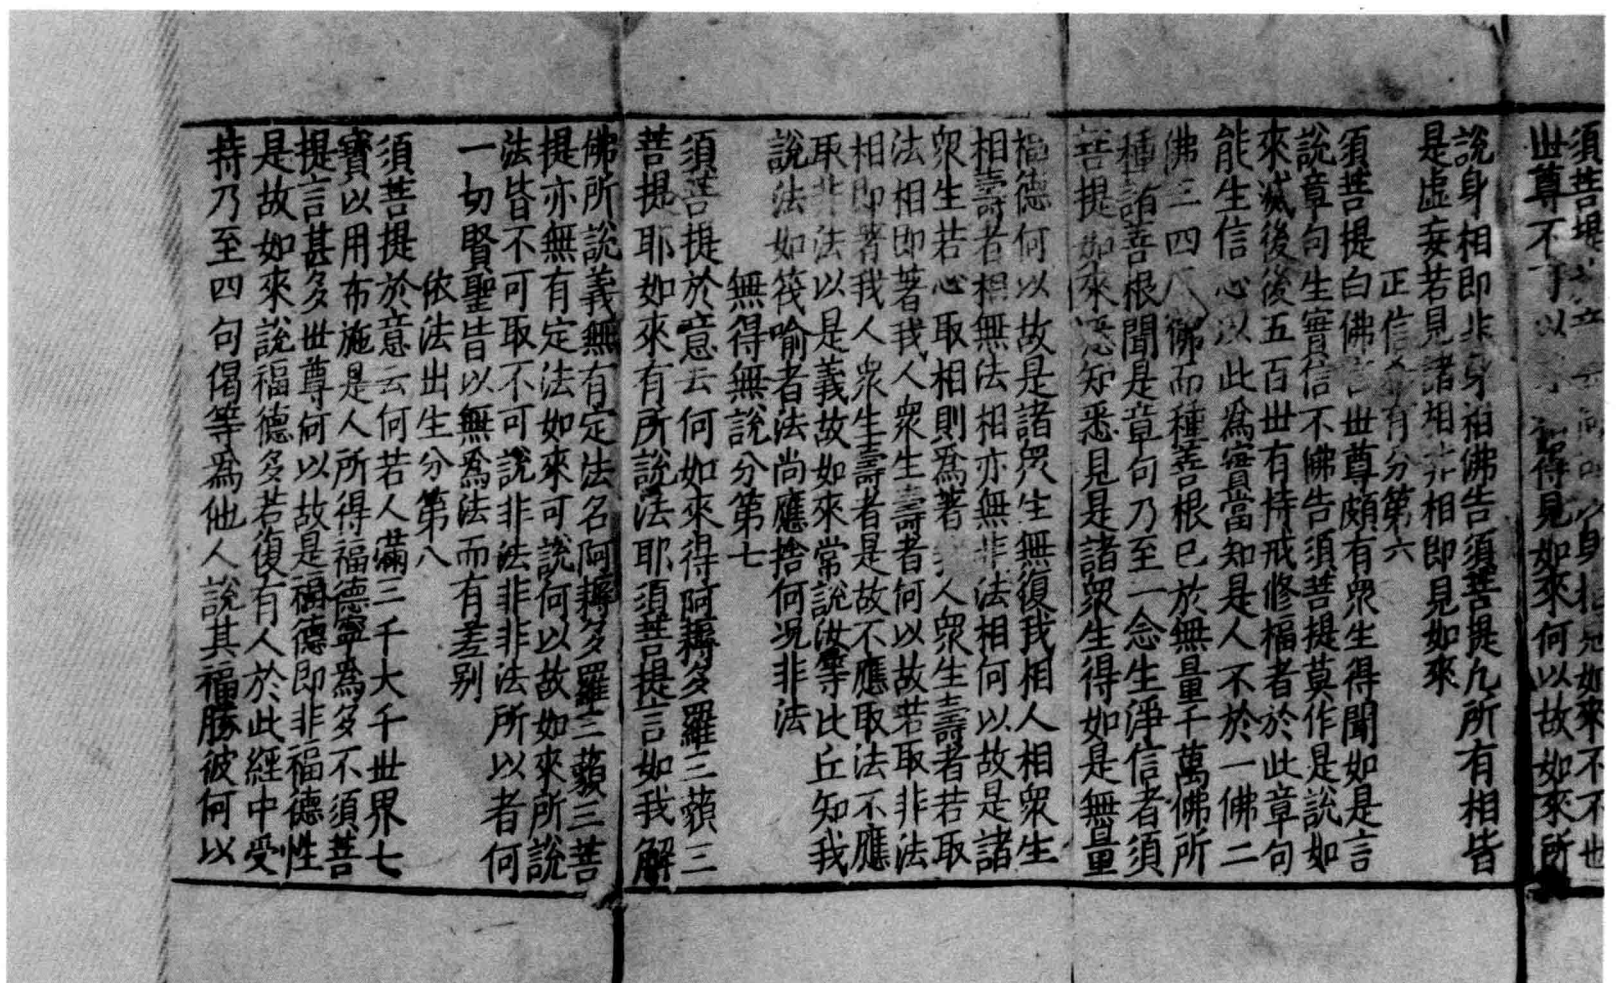 須菩提身相見如來不不也
世尊不可以得見如來何以故如來所
說身相即非身相佛告須菩提凡所有相皆
是虛妄若見諸相非相即見如來
正信希有分第六
須菩提白佛言世尊頗有眾生得聞如是言
說章句生實信不佛告須菩提莫作是說如
來滅後後五百世有持戒修福者於此章句
能生信心以此為實當知是人不於一佛二
佛三四五佛而種善根已於無量千萬佛所
種諸善根聞是章句乃至一念生淨信者須
菩提如來悉知悉見是諸眾生得如是無量
福德何以故是諸眾生無復我相人相眾生
相壽者相無法相亦無非法相何以故是諸
眾生若心取相則為著我人眾生壽者若取
法相即著我人眾生壽者何以故若取非法
相即著我人眾生壽者是故不應取法不應
取非法以是義故如來常說汝等比丘知我
說法如筏喻者法尚應捨何況非法
無得無說分第七
須菩提於意云何如來得阿耨多羅三藐三
菩提耶如來有所說法耶須菩提言如我解
佛所說義無有定法名阿耨多羅三藐三菩
提亦無有定法如來可說何以故如來所說
法皆不可取不可說非法非非法所以者何
一切賢聖皆以無為法而有差別
依法出生分第八
須菩提於意云何若人滿三千大千世界七
寶以用布施是人所得福德寧為多不須菩
提言甚多世尊何以故是福德即非福德性
是故如來說福德多若復有人於此經中受
持乃至四句偈等為他人說其福勝彼何以